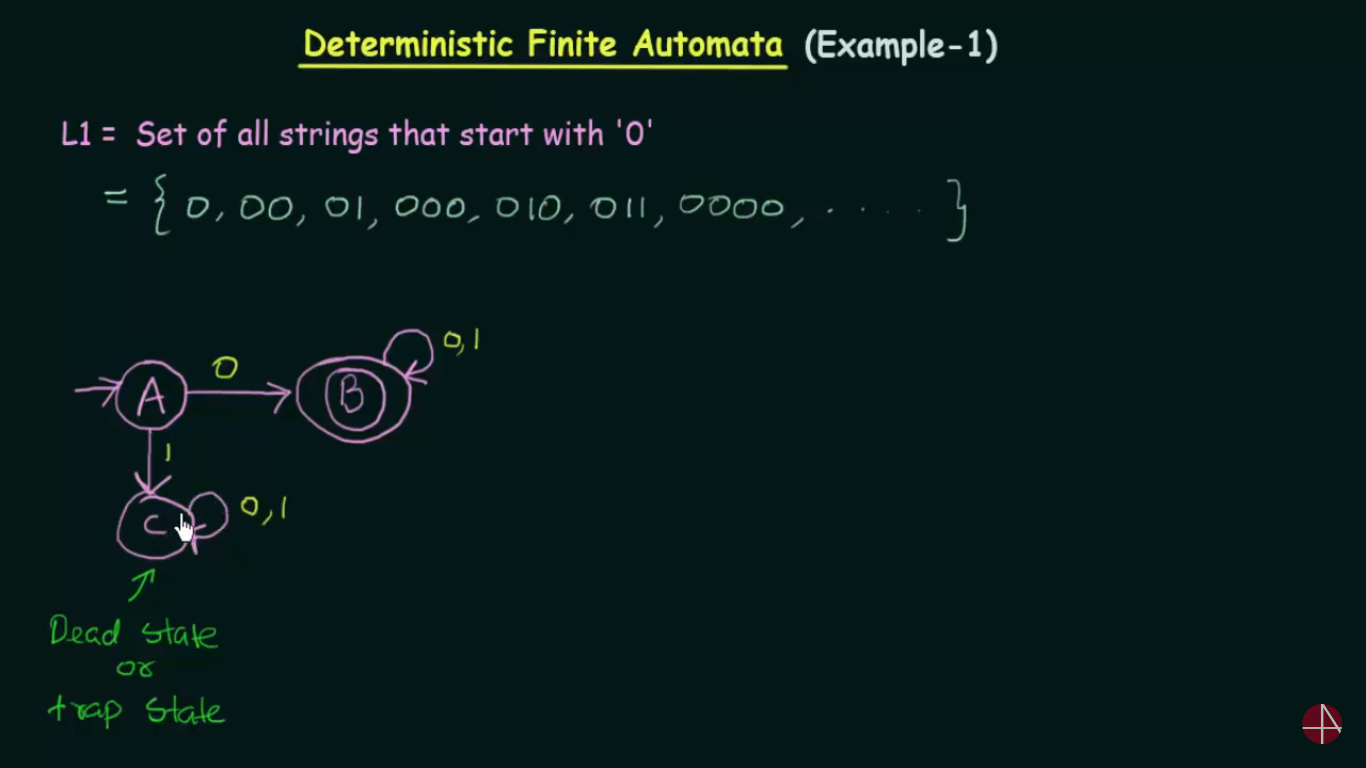 Deterministic Finite Automata (Example-1)
L1 = Set of all strings that start with '0'
= { 0, 00, 01, 000, 010, 011, 0000, ..... }
0,1
0
A
B
1
C
0,1
Dead state
or
trap state